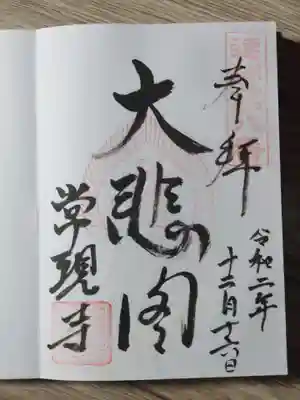 奉拝
令和二年
十二月十六日
大悲閣
常現寺